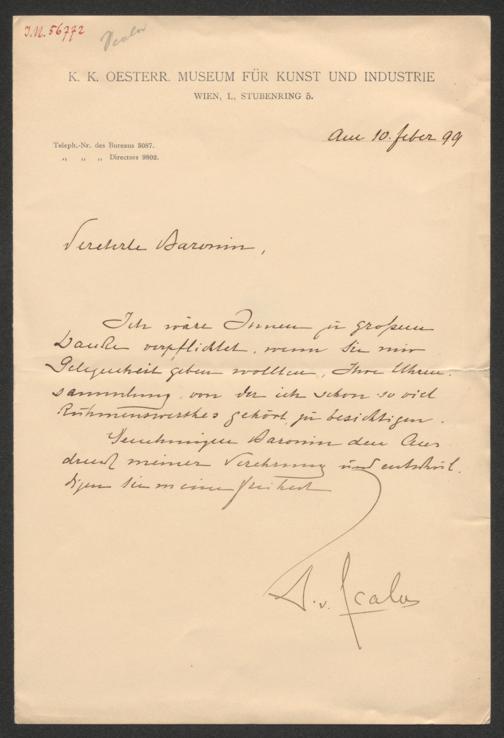 I.N. 56772
Scala
K. K. OESTERR. MUSEUM FÜR KUNST UND INDUSTRIE
WIEN, I., STUBENRING 5.
Am 10. feber 99
Teleph.-Nr. des Bureaus 5087.
„ „ „ Directors 9802.
Verehrte Baronin,
Ich wäre Ihnen zu großem
Danke verpflichtet, wenn Sie mir
Gelegenheit geben wollten, Ihre Uhren-
sammlung von der ich schon so viel
Rühmenswerthes gehört, zu besichtigen.
Genehmigen Baronin den Aus
druck meiner Verehrung und entschul-
digen Sie meine Freiheit
A. v. Scala